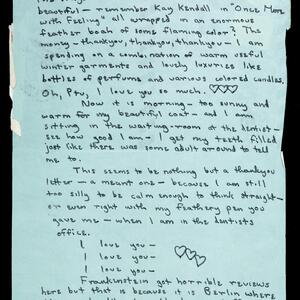 beautiful - remember Kay Kendall in "Once More
with Feeling" all wrapped in an enormous
feather boah of some flaming color? The
money - thankyou, thankyou, thankyou - I am
spending on a combination of warm useful
winter garments and lovely luxuries like
bottles of perfume and various colored candles.
Oh, Ptv, I love you so much. ♡♡♡
Now it is morning - too sunny and
warm for my beautiful coat - and I am
sitting in the waiting-room of the dentist -
see how good I am - I get my teeth filled
just like there was some adult around to tell
me to.
This seems to be nothing but a thankyou
letter - a meant one - because I am still
too silly to be calm enough to think straight -
or even right with my feathery pen you
gave me - when I am in the dentists
office.
I love you -
I love you -
I love you -
I love you -
Frankenstein got horrible reviews
here but that is because it is Berlin where